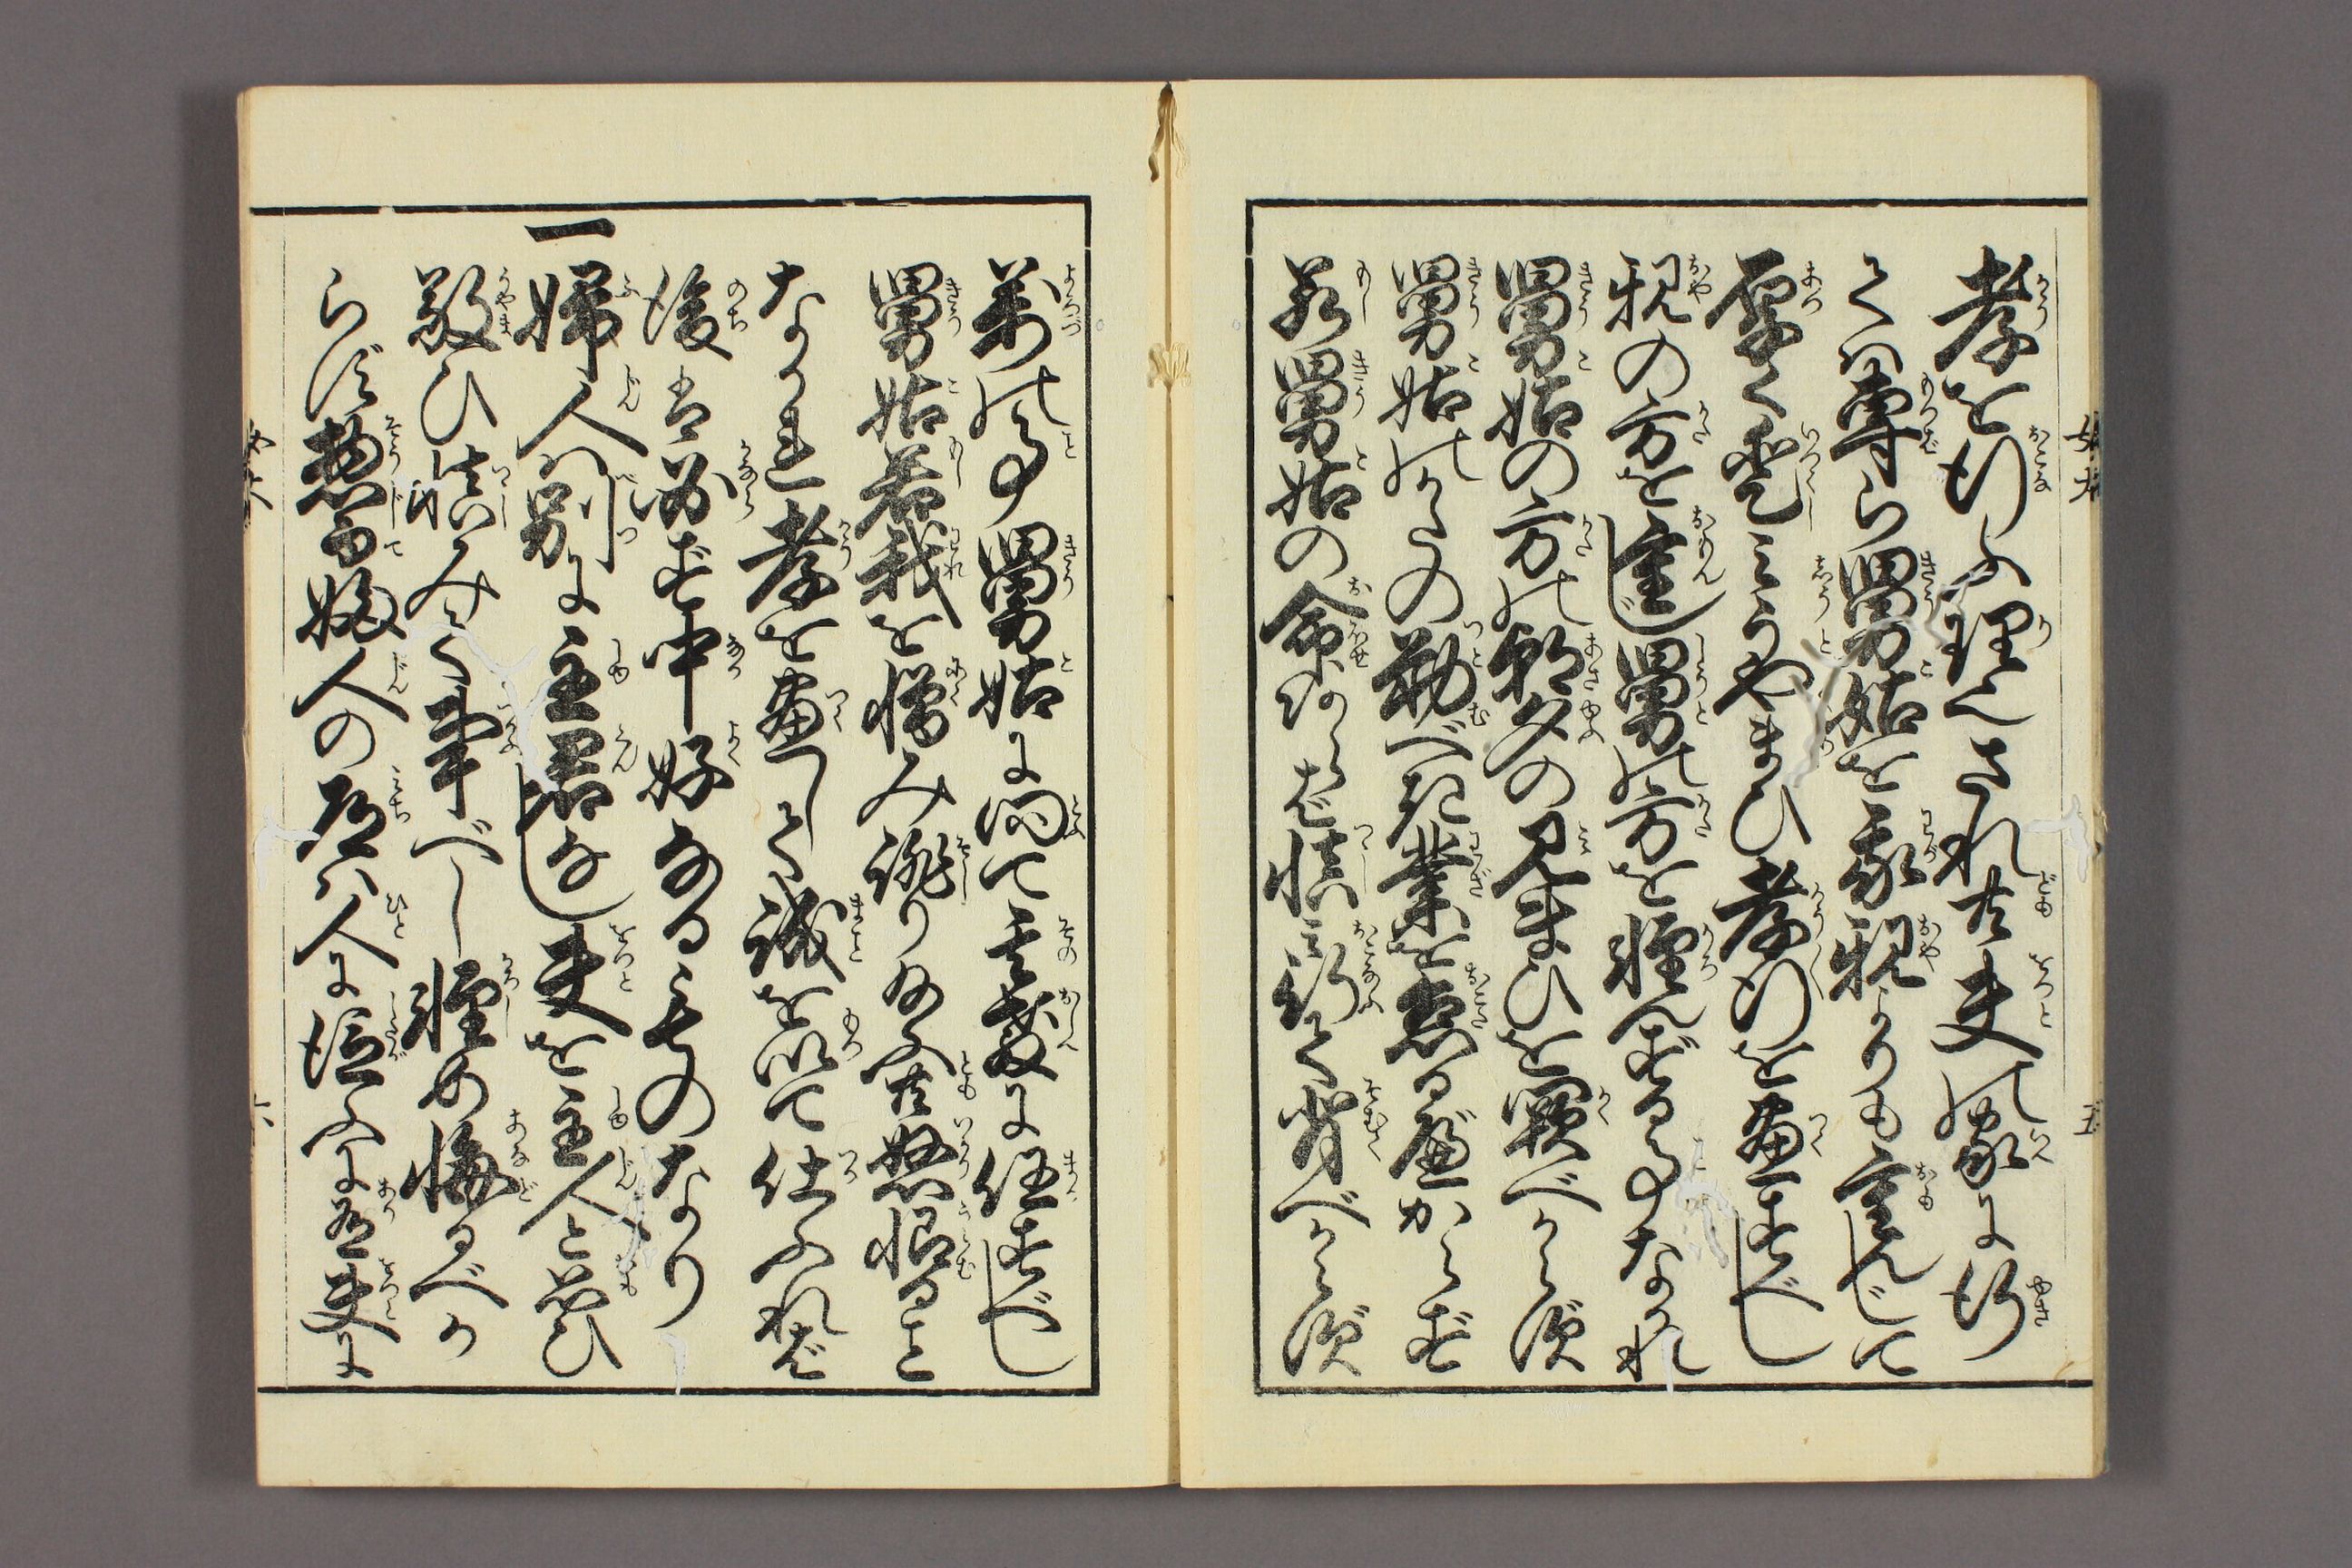 孝を行ふ理也され共夫の家に行
ては専ら舅姑を我親よりも重んじて
厚く愛しみうやまひ孝行を尽すべし
親の方を重んじ舅の方を軽んずる事なかれ
舅姑の方の朝夕の見まひを闕べからず
舅姑のかたの勤べき業を怠るべからず
若舅姑の命あらば慎み行て背べからず
萬の事舅姑に問て其教に任すべし
舅姑若我を憎み誹り給ふ共怒恨ること
なかれ孝を尽して誠を以て仕ふれば
後は必ず中好なるものなり
一婦人は別に主君なし夫を主人と思ひ
敬ひ慎みて事べし軽め侮るべか
らず惣而婦人の道は人に従ふに有夫に